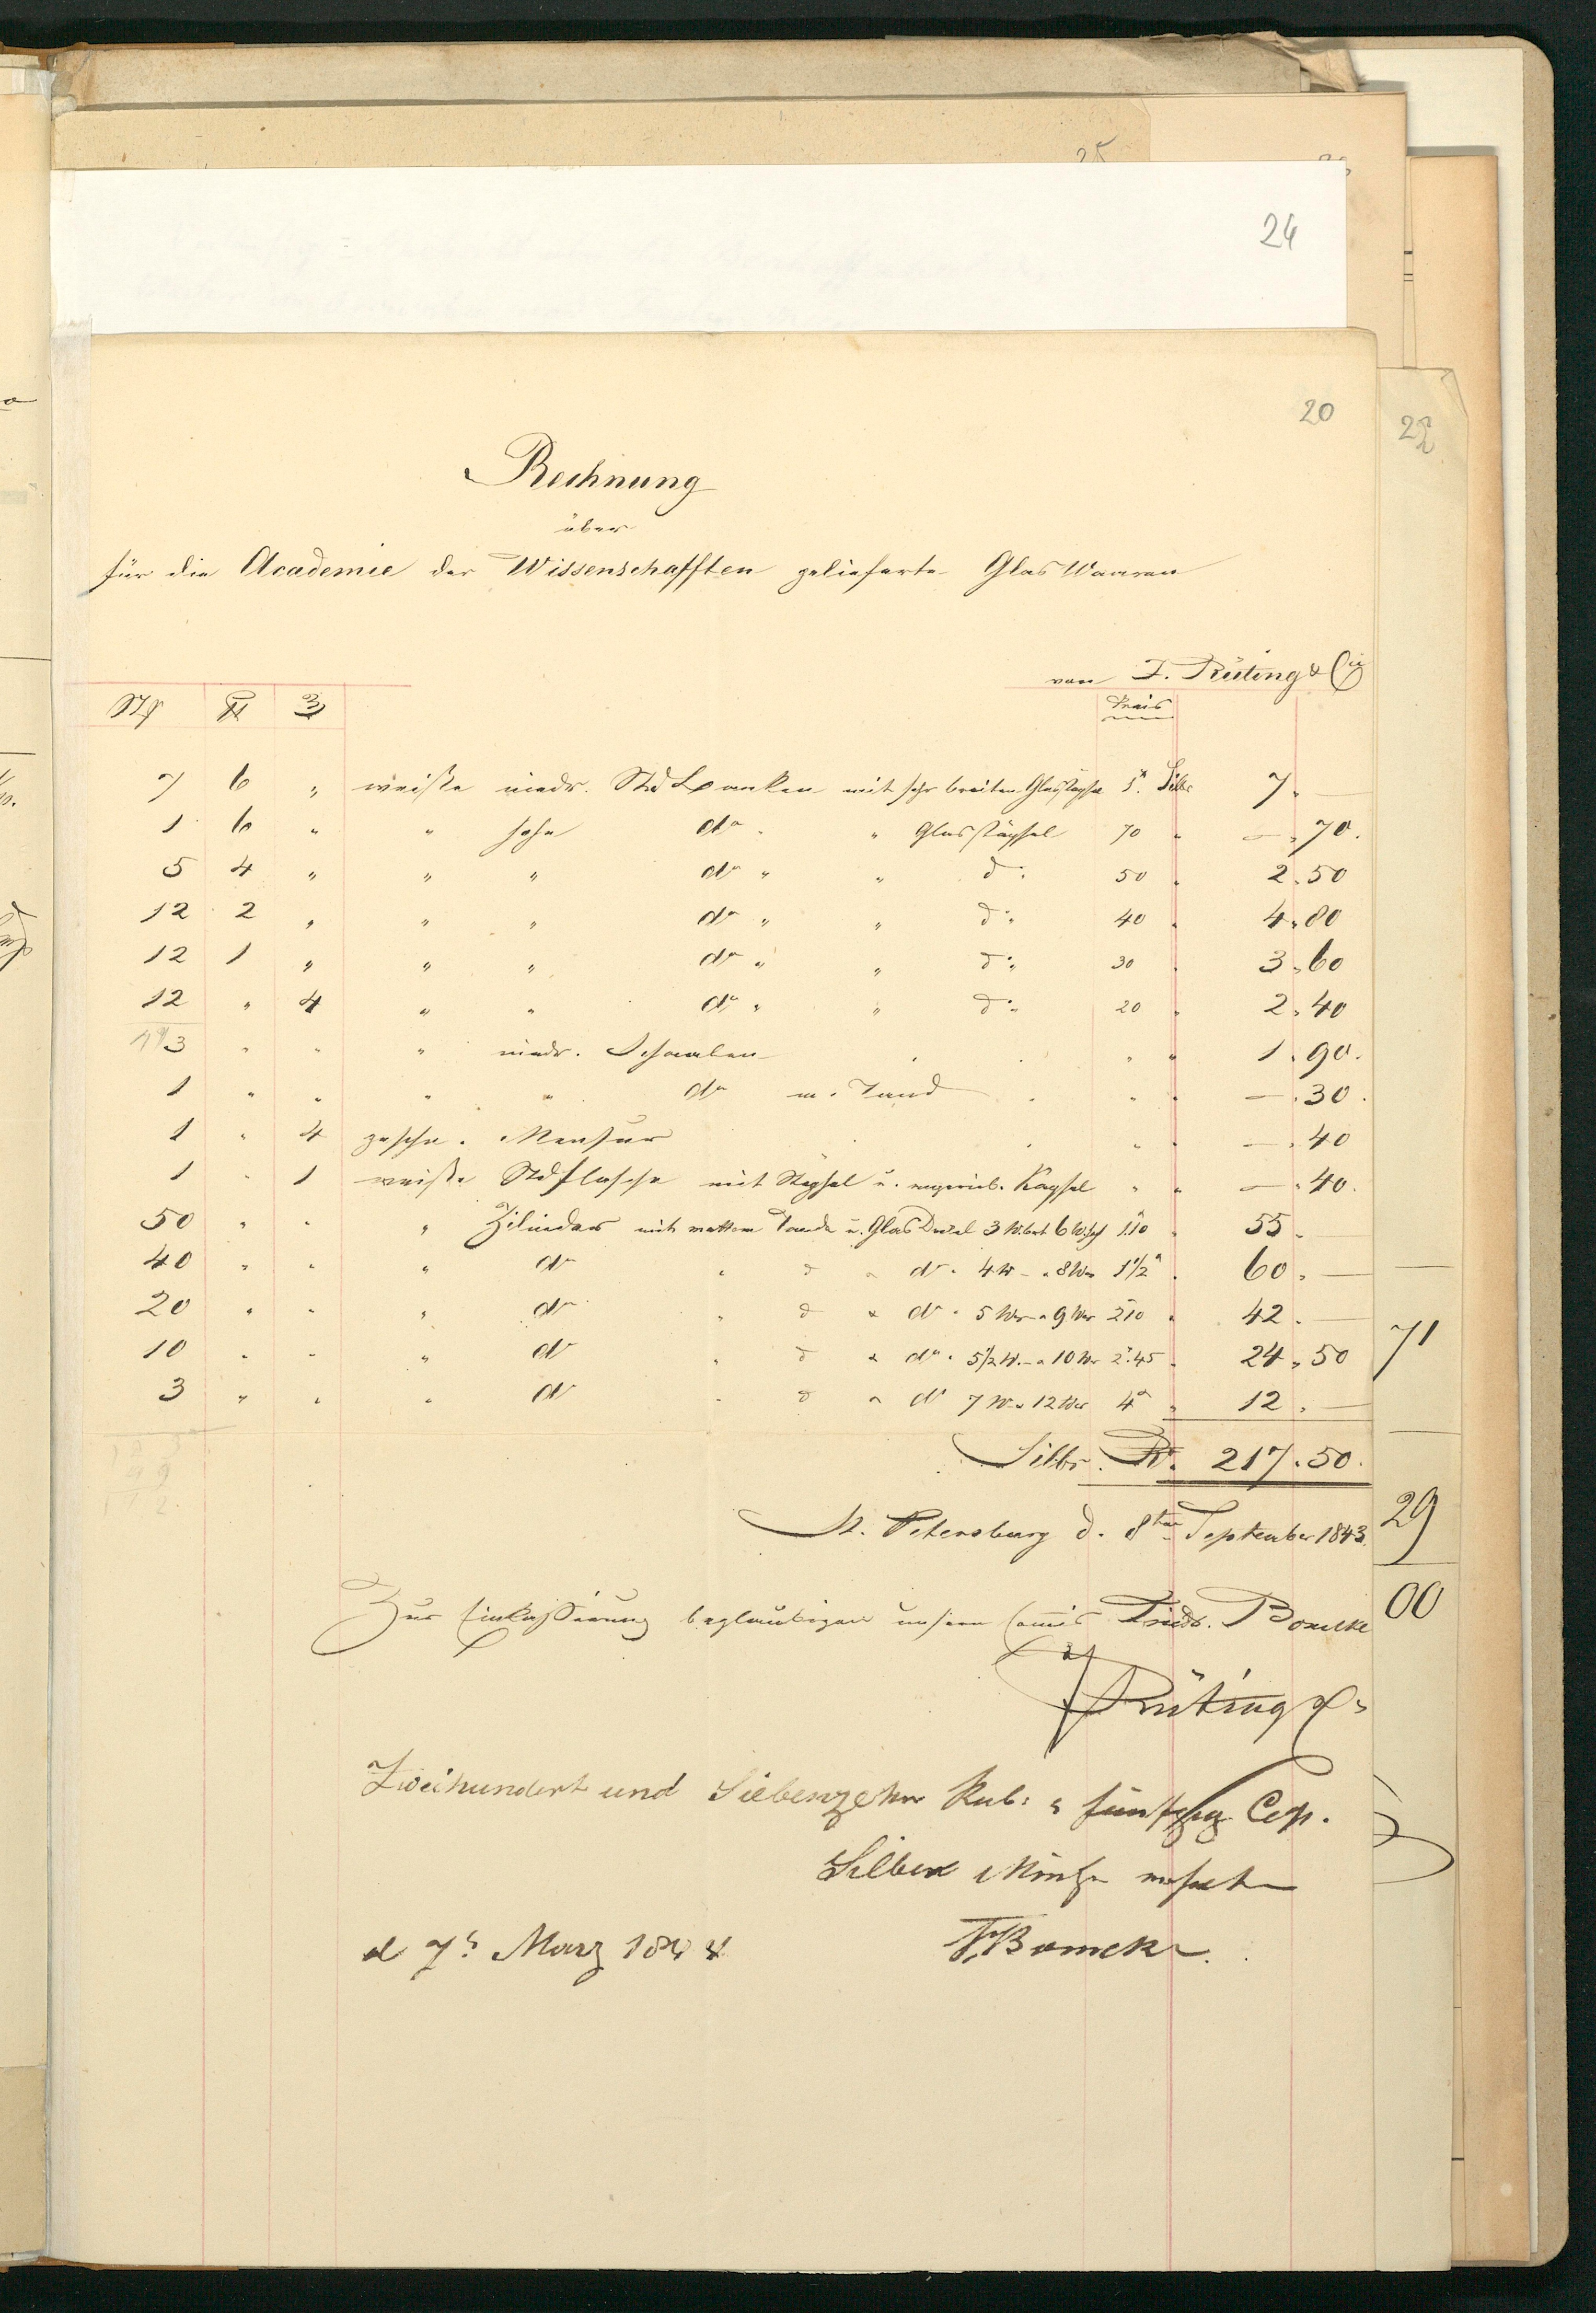 25
24
20
22
Rechnung
über
für die Academie der Wissenschafften gelieferte Glas Waaren
von F. Rüting & Cie
Stk ℔ ℥ Preis
7 6 " weiße niedr. mit sehr breiten Glasstöpsel 1. Silb 7. —
1 6 " " hohe do " Glasstöpsel 70 " — " 70.
5 4 " " " do " " d: 50 " 2. 50
12 2 " " " do " " d: 40 " 4. 80
12 1 " " " do " " d: 30 " 3. 60
12 " 4 " " do " " d: 20 " 2. 40
3 " " " niedr. Schaalen " " 1. 90.
1 " " " " do m. Rand " " — . 30.
1 " 4 Mensur " " — . 40
1 " 1 weiße Stdflasche mit Stöpsel u. Kapsel " " — . 40.
50 " " " Zilinder mit mattem Rande u. Glas Deckel 3 W. 6 W. 1.10 " 55. —
40 " " " do " d " do " 4 W — " 8 Wer 1 1/2 " 60. —
20 " " " do " d " do " 5 Wer " 9 Wer 2.10 " 42. —
10 " " " do " d " do " 5 1/2 W. — " 10 Wer 2.45 " 24. 50
3 " " " do " d " do 7 W " 12 Wer 4 " 12. —
Silbr. R. 217. 50.
St. Petersburg d. 8ten September 1843.
Zur Einkassirung beglaubigen unsern Comis Friedr. Bomcke
F Rüting & Co
Zweihundert und Siebenzehn Rub: & fünfzig Cop.
Silber Münze
d 7t März 1844
F. Bomcke.
71
29
00